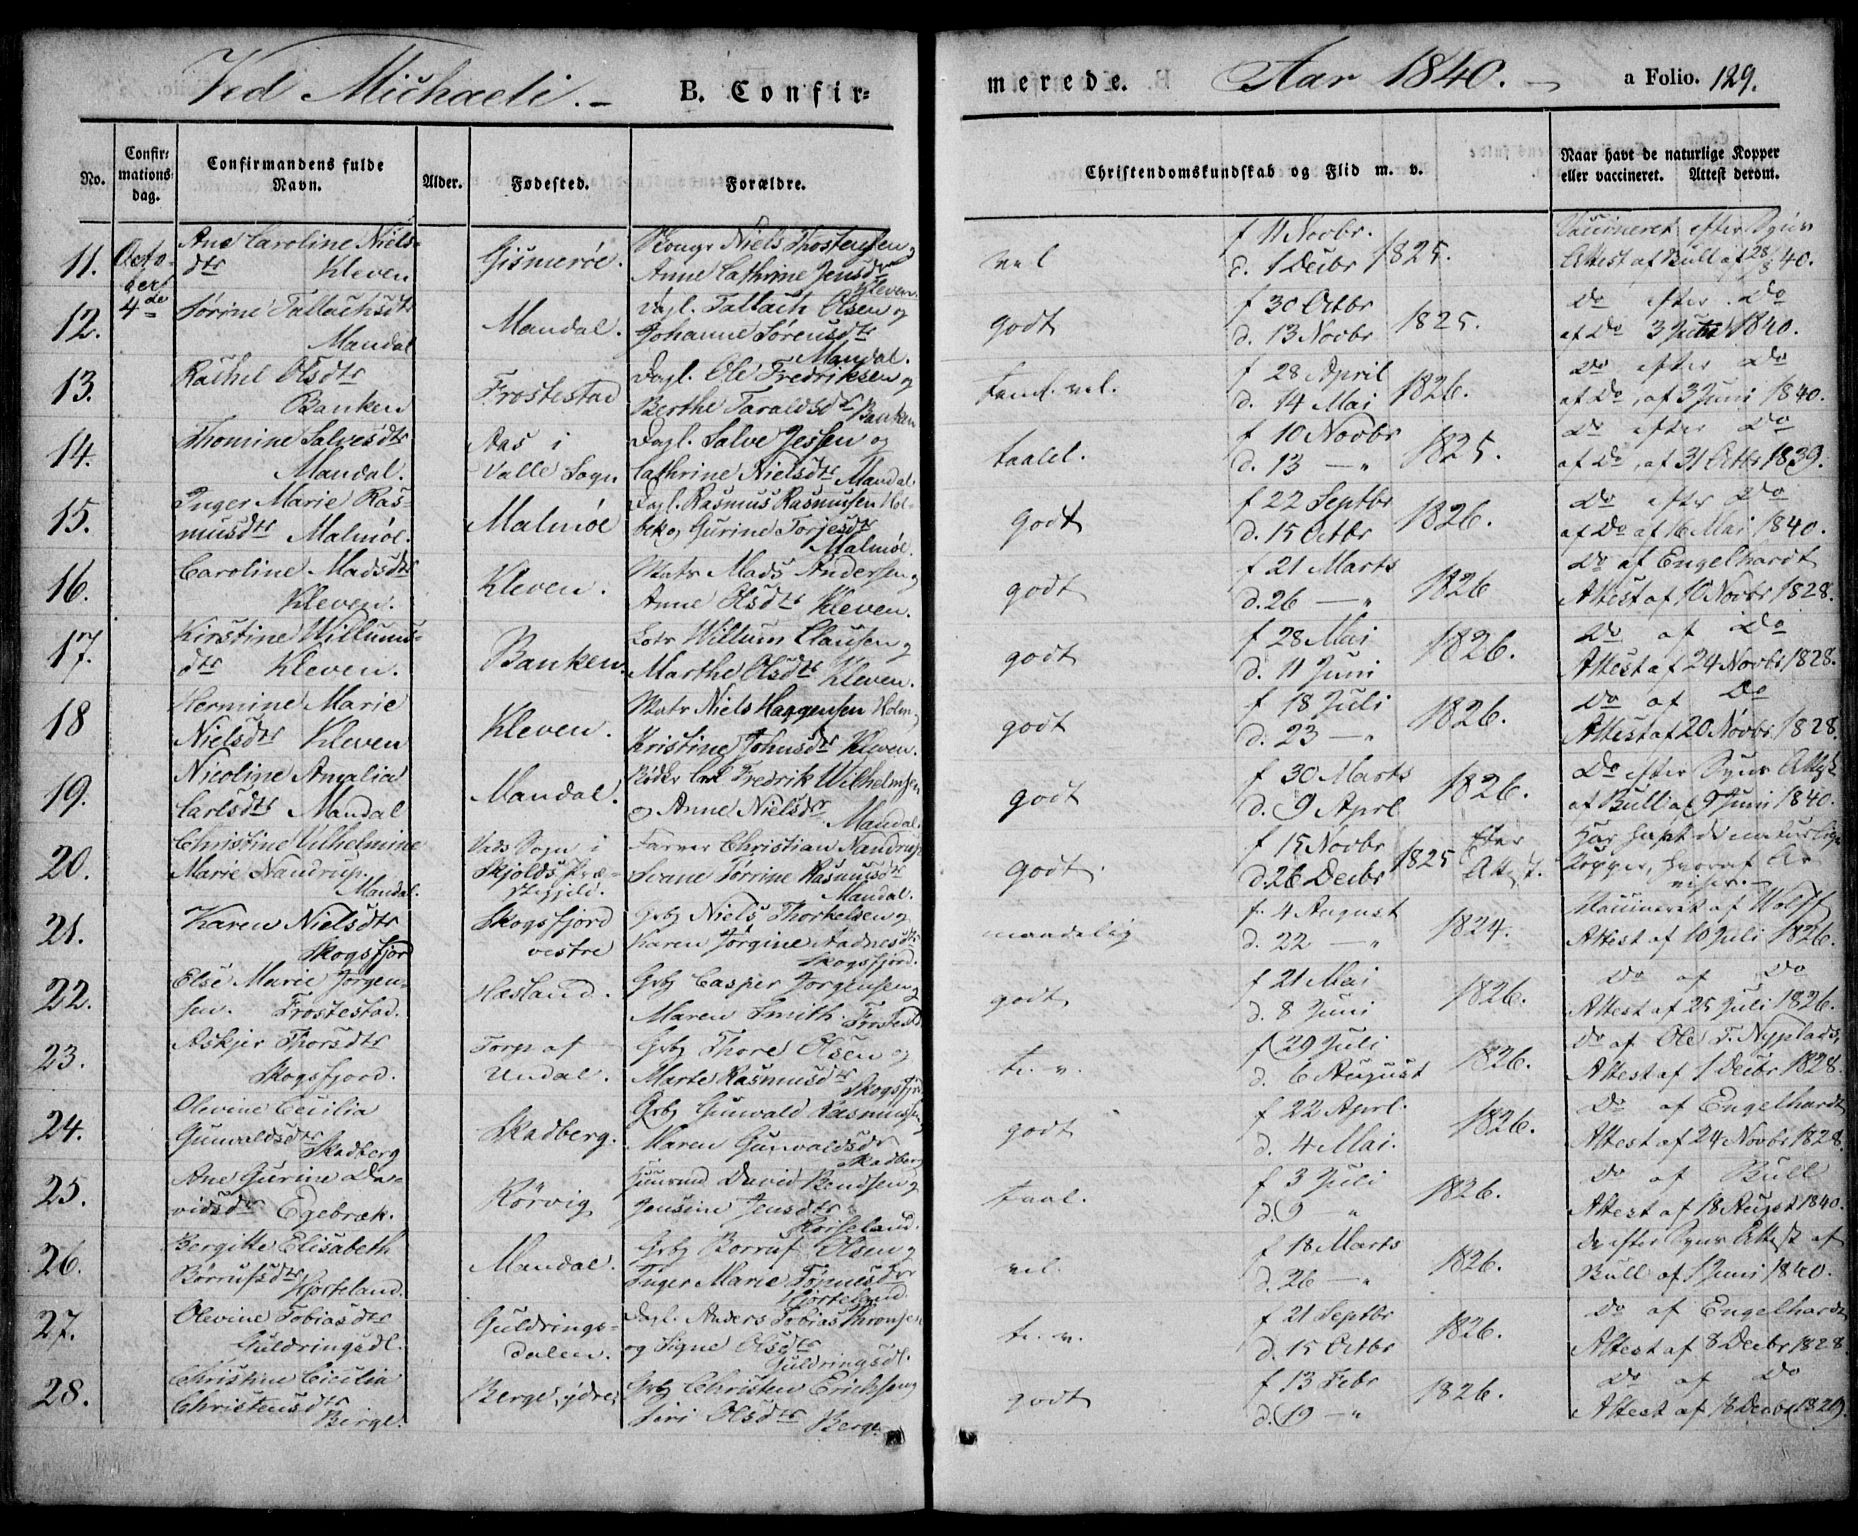 Ved Michaeli. – B. Confir=
No.
Confir=
mations
dag.
Confirmandens fulde
Navn.
Alder.
Fødested.
Forældre.
11. Octo- Ane Caroline Niels- Niels Thostensen og
ber dtr Kleven Gismerøe. Anne Cathrine Jensdtr
4de Kleven.
12. Sørine Tallachsdtr Mandal. Dagl. Tallach Olsen og
Mandal Johanne Sørensdtr
Mandal.
13. Rachel Olsdtr Frostestad Dagl. Ole Fredriksen og
Banken Berthe Taraldsdtr Banken
14. Thomine Salvesdtr Aas i Dagl. Salve Jessen og
Mandal. Valle Sogn Cathrine Nielsdtr Mandal
15. Inger Marie Ras- Malmøe Dagl. Rasmus Rasmussen Hol-
musdtr Malmøe. bek og Gurine Torjesdtr
Malmøe.
16. Caroline Madsdtr Kleven. Matr Mads Andersen og
Kleven. Anne Olsdtr Kleven.
17. Kirstine Willums- Banken. Lots Willum Clausen og
dtr Kleven. Marthe Olsdtr Kleven.
18 Hermine Marie Kleven. Matr Niels Haagensen Holm og
Nielsdtr Kleven Kristine Johnsdtr Kleven.
19. Nicoline Amalia Mandal. Bødker Carl Fredrik Wilhelmsen
Carlsdtr Mandal og Anne Nielsdtr Mandal.
20. Christine Vilhelmine Vats Sogn i Farver Christian Nandrup
Marie Nandrup. Skjolds Præ- Svane Tørrine Rasmusdtr
Mandal. stegjeld. Mandal.
21. Karen Nielsdtr Skogsfjord Grbg Niels Thorkelsen og
Skogsfjord vestre Karen Jørgine Aadnesdtr
Skogsfjord.
22. Else Marie Jørgen- Hæsland. Grbg Casper Jørgensen og
sen. Frostestad. Maren Smith. Frostestd
23. Askjer Thorsdtr Torp af Grbg Thore Olsen og
Skogsfjord. Undal. Marte Rasmusdtr Skogsfjord
24. Olevine Cecilia Skadberg. Grbg Gunvald Rasmussen
Gunvaldsdtr Skadberg Maren Gunvaldsdtr
Skadberg
25. Ane Gurine Da- Rørvig David Bendsen og
vidsdtr Egebræk. Jensine Jensdtr
26. Bergitte Elisabeth Mandal. Grbg Børruf Olsen og
Børrufsdtr Hjorteland. Inger Marie Tønnesdtr
Hjorteland
27. Olevine Tobiasdtr Guldrings- Dagl. Anders Tobias Thronsen
Guldringsdl. dalen. og Signe Olsdtr
Guldringsdl.
28. Christine Cicilia Berge, ydre, Grbg Christen Erichsen og
Christensdtr Berge. Siri Olsdtr Berge
merede. Aar 1840. – a Folio. 129.
Christendomskundskab og Flid m. v.
Naar havt de naturlige Kopper
eller vaccineret. Attest derom.
vel f 11 Novbr. 1825. Vaccineret efter Syns
d. 1 Decbr Attest af Bull af 28/8 40.
godt f 30 Octbr 1825. Do efter Do
d. 13 Novbr af Do 3 Juni 1840.
teml. vel. f 28 April 1826. Do efter Do
d. 14 Mai af Do, af 3 Juni 1840.
taalel. f 10 Novbr 1825. Do efter Do
d. 13 – " af Do, af 31 Octbr 1839.
godt f 22 Septbr 1826. Do efter Do
d. 15 Octbr af Do af 16 Mai 1840.
godt f 21 Marts 1826 Do af Engelhardt
d. 26 – " Attest af 10 Novbr 1828.
godt f 28 Mai 1826. Do af Do
d. 11 Juni Attest af 24 Novbr 1828.
godt f 18 Juli 1826. Do af Do
d. 23 – " Attest af 20 Novbr 1828.
godt f 30 Marts 1826. Do efter Syns Attest
d. 9 Aprl af Bull af 9 Juni 1840.
godt. f 15 Novbr 1825 Efter Har havt de naturlige
d. 26 Decbr Attest. Kopper, hvoraf Ar
viser. –
maadelig f. 4 August 1824. Vaccineret af Wolff
d. 22 – " Attest af 10 Juli 1826.
godt f 21 Mai 1826. Do af Do
d. 8 Juni Attest af 25 Juli 1826.
t. v. f 29 Juli 1826. Do af Ole T. Nypladts,
d. 6 August Attest af 1 Decbr 1828.
godt f 22 Aprl. 1826. Do af Engelhardt
d. 4 Mai. Attest af 24 Novbr 1828.
taal. f 3 Juli 1826. Do af Bull
d. 9 " Attest af 18 August 1840.
vel. f 18 Marts 1826. Do efter Syns Attest af
d. 26 – " Bull af 1 Juni 1840.
t. v. f 21 Septbr 1826. Do af Engelhardt
d. 15 Octbr Attest af 8 Decbr 1828.
godt f 13 Febr 1826. Do af Do
d. 19 – " Attest af 18 Decbr 1829.